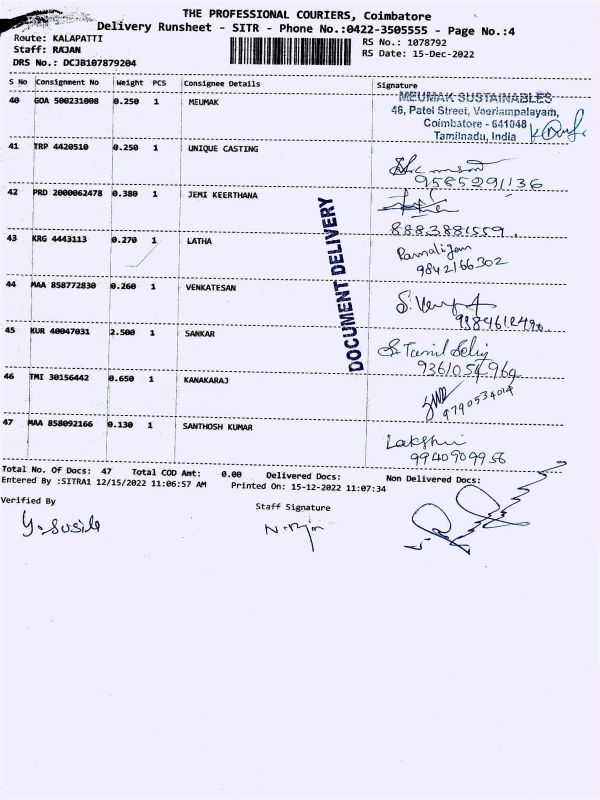 THE PROFESSIONAL COURIERS, Coimbatore
Delivery Runsheet - SITR - Phone No.:0422-3505555 - Page No.:4
Route: KALAPATTI
RS No.: 1078792
Staff: RAJAN
RS Date: 15-Dec-2022
DRS No.: DCJB107879204
S No Consignment No Weight PCS Consignee Details Signature
40 GOA 500231008 0.250 1 MEUMAK
MEUMAK SUSTAINABLES
46, Patel Street, Veeriampalayam,
Coimbatore - 641048
Tamilnadu, India
41 TRP 4420510 0.250 1 UNIQUE CASTING
9585291136
42 PRD 2000062478 0.380 1 JEMI KEERTHANA
8883881559.
43 KRG 4443113 0.270 1 LATHA
9842166302
DOCUMENT DELIVERY
44 MAA 858772830 0.260 1 VENKATESAN
45 KUR 40047031 2.500 1 SANKAR
S. Tamil Selvi
46 TMI 30156442 0.650 1 KANAKARAJ
9790534014
47 MAA 858092166 0.130 1 SANTHOSH KUMAR
Lakshmi
9940909956
Total No. Of Docs: 47 Total COD Amt: 0.00 Delivered Docs: Non Delivered Docs:
Entered By :SITRA1 12/15/2022 11:06:57 AM Printed On: 15-12-2022 11:07:34
Verified By
Staff Signature
Y. Susila